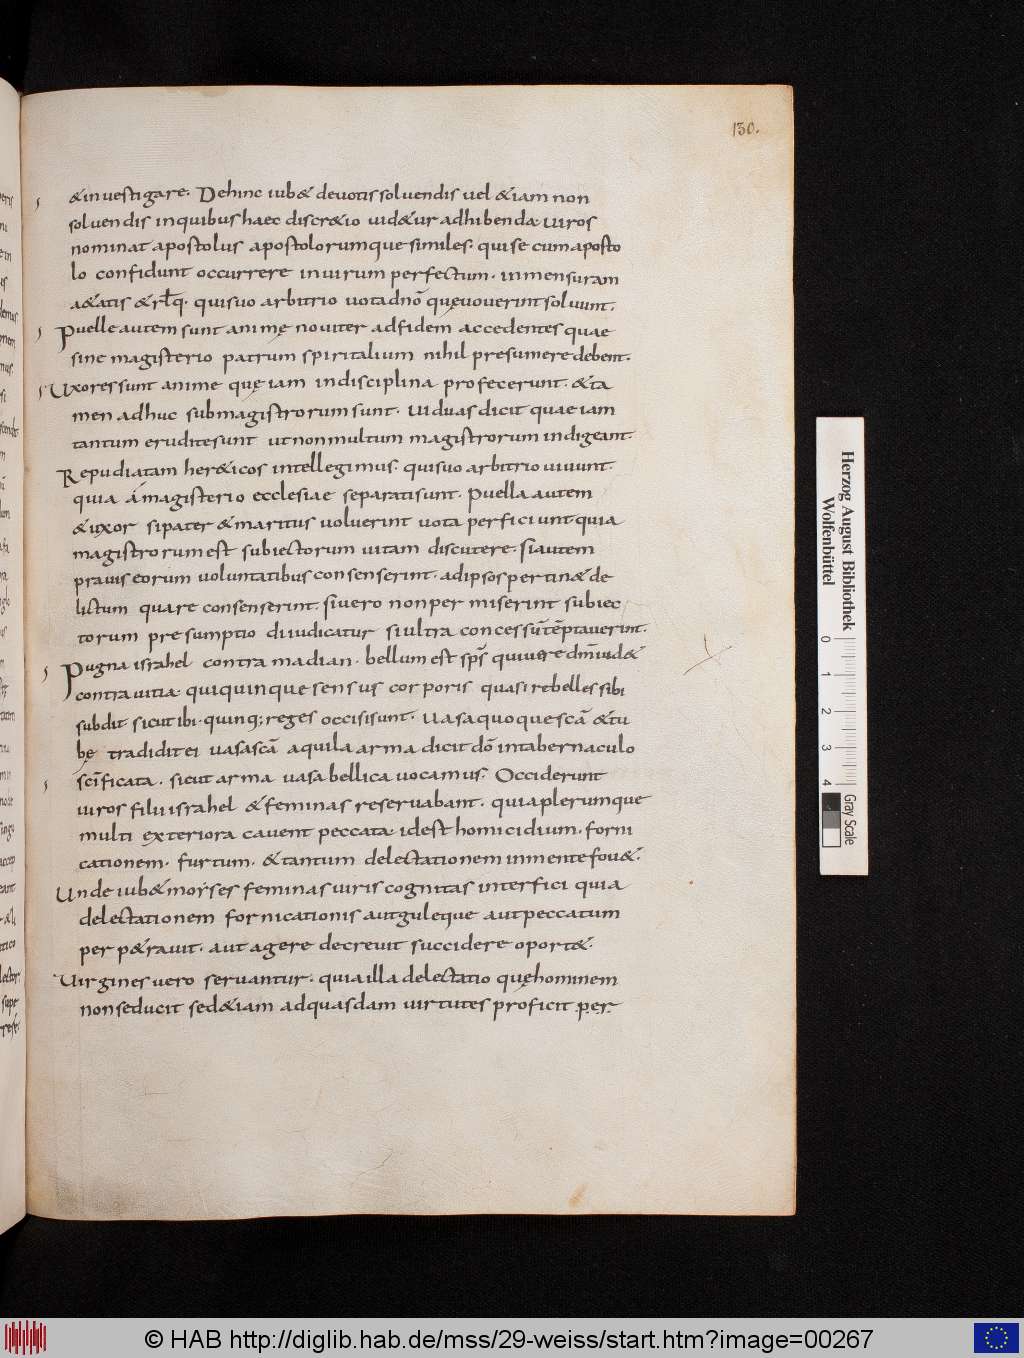 130.
&inuestigare. Dehinc iub& deuotis soluendis uel &iam non
soluendis inquibus haec discr&io uid&ur adhibenda uiros
nominat apostolus apostolorumque similes. quise cum aposto
lo confidunt occurrere inuirum perfectum. inmensuram
a&atis &rlq. quisuo arbitrio uota dnõ quę uouerint soluunt.
Puelle autem sunt animę nouiter adfidem accedentes quae
sine magisterio patrum spiritalium nihil presumere debent.
Uxores sunt anime quę iam indisciplina profecerunt. &ta
men adhuc submagistrorum sunt. Uiduas dicit quae iam
tantum erudite sunt ut non multum magistrorum indigeant.
Repudiatam her&icos intellegimus. quisuo arbitrio uiuunt.
quia á magisterio ecclesiae separati sunt. Puella autem
&uxor sipater &maritus uoluerint uota perficiunt quia
magistrorum est subiectorum uitam discutere. Si autem
prauis eorum uoluntatibus consenserint. adipsos pertin& de
lictum quare consenserint. siuero nonpermiserint subiec
torum presumptio diiudicatur si ultra concessũ tẽptauerint.
Pugna israhel contra madian. bellum est sps̃ quiuere dm̃ uid&
contra uitia. quiquinque sensus corporis quasi rebelles sibi
subdit sicut ibi. quinq; reges occisi sunt. Uasa quoque scã &tu
bę tradidit ei uasa scã aquila arma dicit dõ intabernaculo
scĩficata. sicut arma uasa bellica uocamus. Occiderunt
uiros filii israhel &feminas reseruabant. quia plerumque
multi exteriora cauent peccata. idest homicidium. forni
cationem. furtum. &tantum delectationem inmente fou&.
Unde iub& morses feminas uiris cognitas interfici quia
delectationem fornicationis aut guleque aut peccatum
perp&rauit. aut agere decreuit succidere oport&.
Uirgines uero seruantur. quia illa delectatio quę hominem
non seducit sed &iam adquasdam uirtutes proficit per
Herzog August Bibliothek
Wolfenbüttel
0 1 2 3 4
Gray Scale
© HAB http://diglib.hab.de/mss/29-weiss/start.htm?image=00267